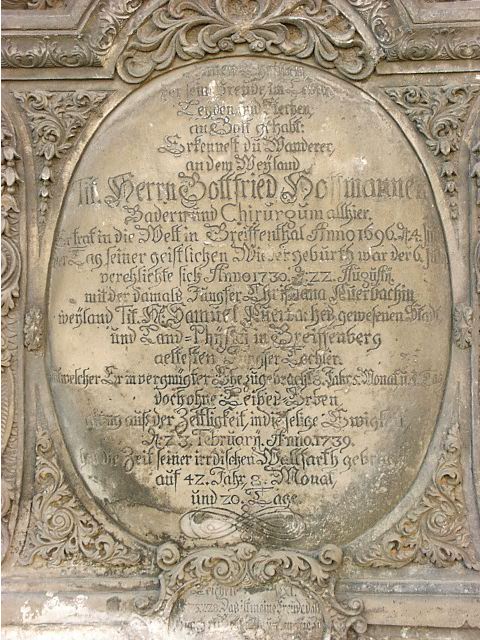 der seine Freude im Leben,
Leyden und Sterben,
an Gott gehabt:
Erkennest du Wanderer,
an dem Weyland
Tit. Herrn Gottfried Hoffmannen
Badern und Chirurgum allhier,
Er trat in die Welt in Greiffenthal Anno 1696. d. 4.
Tag seiner geistlichen Wiedergeburth war der 6.
verehlichte sich Anno 1730. d. 22. Augusti
mit der damals Jungfer Christiana Auerbachin
weyland Tit. H. Samuel Auerbachen gewesenen Stadt
und Land-Physici in Greiffenberg
aeltesten Jungfer Tochter.
welcher Er in vergnügter Ehe zugebracht 8. Jahr 5. Monat u. 1. Tag
doch ohne Leibes-Erben,
gieng auß der Zeitligkeit, in die selige Ewigkeit
d. 23. Februarij. Anno. 1739.
die Zeit seiner irrdischen Wallfarth
auf 42. Jahr. 8. Monat
und 20. Tage.